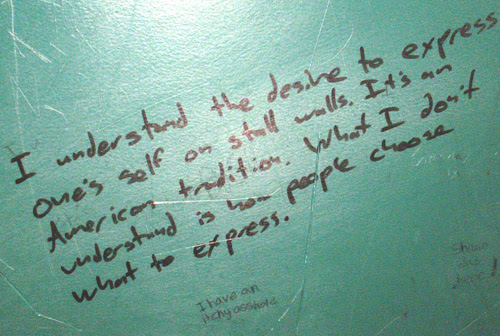 I understand the desire to express
one's self on stall walls. It's an
American tradition. What I don't
understand is how people choose
what to express.
I have an
itchy asshole